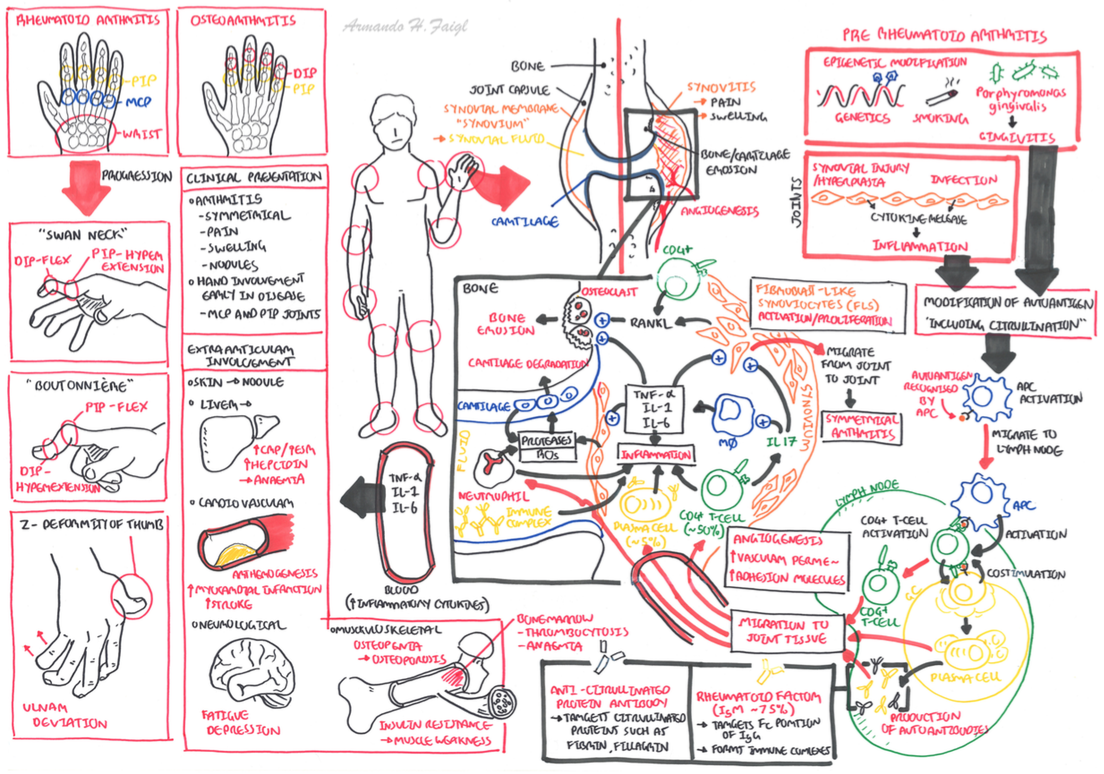 RHEUMATOID ARTHRITIS
PIP
MCP
WAIST
OSTEOARTHRITIS
DIP
PIP
Armando H. Faigl
PROGRESSION
"SWAN NECK"
DIP-FLEX
PIP-HYPER
EXTENSION
"BOUTONNIÈRE"
PIP-FLEX
DIP-
HYPEREXTENSION
Z-DEFORMITY OF THUMB
ULNAR
DEVIATION
CLINICAL PRESENTATION
ARTHRITIS
-SYMMETRICAL
-PAIN
-SWELLING
-NODULES
HAND INVOLVEMENT
EARLY IN DISEASE
-MCP AND PIP JOINTS
EXTRAARTICULAR
INVOLVEMENT
SKIN → NODULE
LIVER →
↑CRP/↑ESR
↑HEPCIDIN
→ANAEMIA
CARDIOVASCULAR
ARTHEROGENESIS
↑MYOCARDIAL INFARCTION
↑STROKE
NEUROLOGICAL
FATIGUE
DEPRESSION
MUSCULOSKELETAL
OSTEOPENIA
→ OSTEOPOROSIS
INSULIN RESISTANCE
→ MUSCLE WEAKNESS
BONEMARROW
-THROMBOCYTOSIS
-ANAEMIA
TNF-α
IL-1
IL-6
BLOOD
(↑INFLAMMATORY CYTOKINES)
BONE
JOINT CAPSULE
SYNOVIAL MEMBRANE
"SYNOVIUM"
→ SYNOVIAL FLUID
CARTILAGE
SYNOVITIS
→ PAIN
→ SWELLING
BONE/CARTILAGE
EROSION
ANGIOGENESIS
BONE
OSTEOCLAST
BONE
EROSION
RANKL
CD4+
CARTILAGE DEGRADATION
CARTILAGE
FLUID
PROTEASES
ROS
NEUTROPHIL
IMMUNE
COMPLEX
TNF-α
IL-1
IL-6
INFLAMMATION
MØ
IL17
PLASMA CELL
(~5%)
CD4+ T-CELL
(~50%)
SYNOVIUM
FIBROBLAST-LIKE
SYNOVIOCYTES (FLS)
ACTIVATION/PROLIFERATION
MIGRATE
FROM JOINT
TO JOINT
SYMMETRICAL
ARTHRITIS
ANGIOGENESIS
↑VASCULAR PERME~
↑ADHESION MOLECULES
MIGRATION TO
JOINT TISSUE
ANTI-CITRULLINATED
PROTEIN ANTIBODY
→ TARGETS CITRULLINATED
PROTEINS SUCH AS
FIBRIN, FILLAGRIN
RHEUMATOID FACTOR
(IgM ~75%)
→ TARGETS Fc PORTION
OF IgG
→ FORMS IMMUNE COMPLEXES
PRE RHEUMATOID ARTHRITIS
EPIGENETIC MODIFICATION
GENETICS
SMOKING
Porphyromonas
gingivalis
GINGIVITIS
JOINTS
SYNOVIAL INJURY
/HYPERPLASIA
INFECTION
CYTOKINE RELEASE
INFLAMMATION
MODIFICATION OF AUTOANTIGEN
"INCLUDING CITRULLINATION"
AUTOANTIGEN
RECOGNISED
BY
APC
APC
ACTIVATION
MIGRATE TO
LYMPH NODE
LYMPH NODE
APC
CD4+ T-CELL
ACTIVATION
ACTIVATION
COSTIMULATION
CD4+
T-CELL
PLASMA CELL
PRODUCTION
OF AUTOANTIBODIES